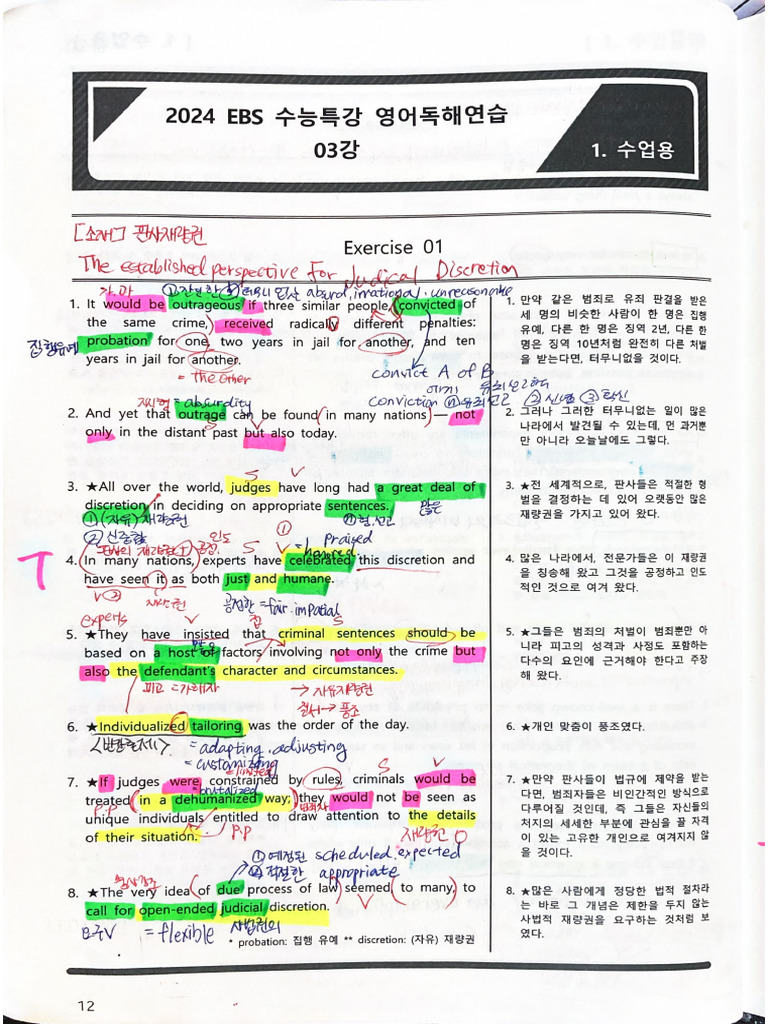 2024 EBS 수능특강 영어독해연습
03강
1. 수업용
[소재] 판사재량권
Exercise 01
The established perspective for Judical Discretion
absurd, irrational, unreasonable
1. It would be outrageous if three similar people, convicted of
the same crime, received radically different penalties:
집행유예
probation for one, two years in jail for another, and ten
years in jail for another.
= the other
convict A of B
에게 유죄선고하다
conviction ⓝ ①유죄선고 ②신념 ③확신
= absurdity
2. And yet that outrage can be found in many nations — not
only in the distant past but also today.
S V
3. ★All over the world, judges have long had a great deal of
discretion in deciding on appropriate sentences.
많은
①(자유)재량권
②신중함
ⓝ형.선고
판사의 재량권
S V
= praised
honored
4. In many nations, experts have celebrated this discretion and
have seen it as both just and humane.
V②
재량권
공정한 = fair.impatial
experts
V
S
5. ★They have insisted that criminal sentences should be
based on a host of factors involving not only the crime but
많은
also the defendant's character and circumstances.
피고 = 가해자
→ 자유재량권
질서 → 풍조
6. ★Individualized tailoring was the order of the day.
= adapting.adjusting
= customizing
= limited
S V
7. ★If judges were constrained by rules, criminals would be
treated in a dehumanized way; they would not be seen as
P.P
범죄자
unique individuals entitled to draw attention to the details
of their situation.
P.P
재량권 O
①예정된 scheduled.expected
②적절한 appropriate
8. ★The very idea of due process of law seemed to many, to
call for open-ended judicial discretion.
V
요구V = flexible 사법권의
* probation: 집행 유예 ** discretion: (자유) 재량권
1. 만약 같은 범죄로 유죄 판결을 받은
세 명의 비슷한 사람이 한 명은 집행
유예, 다른 한 명은 징역 2년, 다른 한
명은 징역 10년처럼 완전히 다른 처벌
을 받는다면, 터무니없을 것이다.
2. 그러나 그러한 터무니없는 일이 많은
나라에서 발견될 수 있는데, 먼 과거뿐
만 아니라 오늘날에도 그렇다.
3. ★전 세계적으로, 판사들은 적절한 형
벌을 결정하는 데 있어 오랫동안 많은
재량권을 가지고 있어 왔다.
4. 많은 나라에서, 전문가들은 이 재량권
을 칭송해 왔고 그것을 공정하고 인도
적인 것으로 여겨 왔다.
5. ★그들은 범죄의 처벌이 범죄뿐만 아
니라 피고의 성격과 사정도 포함하는
다수의 요인에 근거해야 한다고 주장
해 왔다.
6. ★개인 맞춤이 풍조였다.
7. ★만약 판사들이 법규에 제약을 받는
다면, 범죄자들은 비인간적인 방식으로
다루어질 것인데, 즉 그들은 자신들의
처지의 세세한 부분에 관심을 끌 자격
이 있는 고유한 개인으로 여겨지지 않
을 것이다.
8. ★많은 사람에게 정당한 법적 절차라
는 바로 그 개념은 제한을 두지 않는
사법적 재량권을 요구하는 것처럼 보
였다.
12